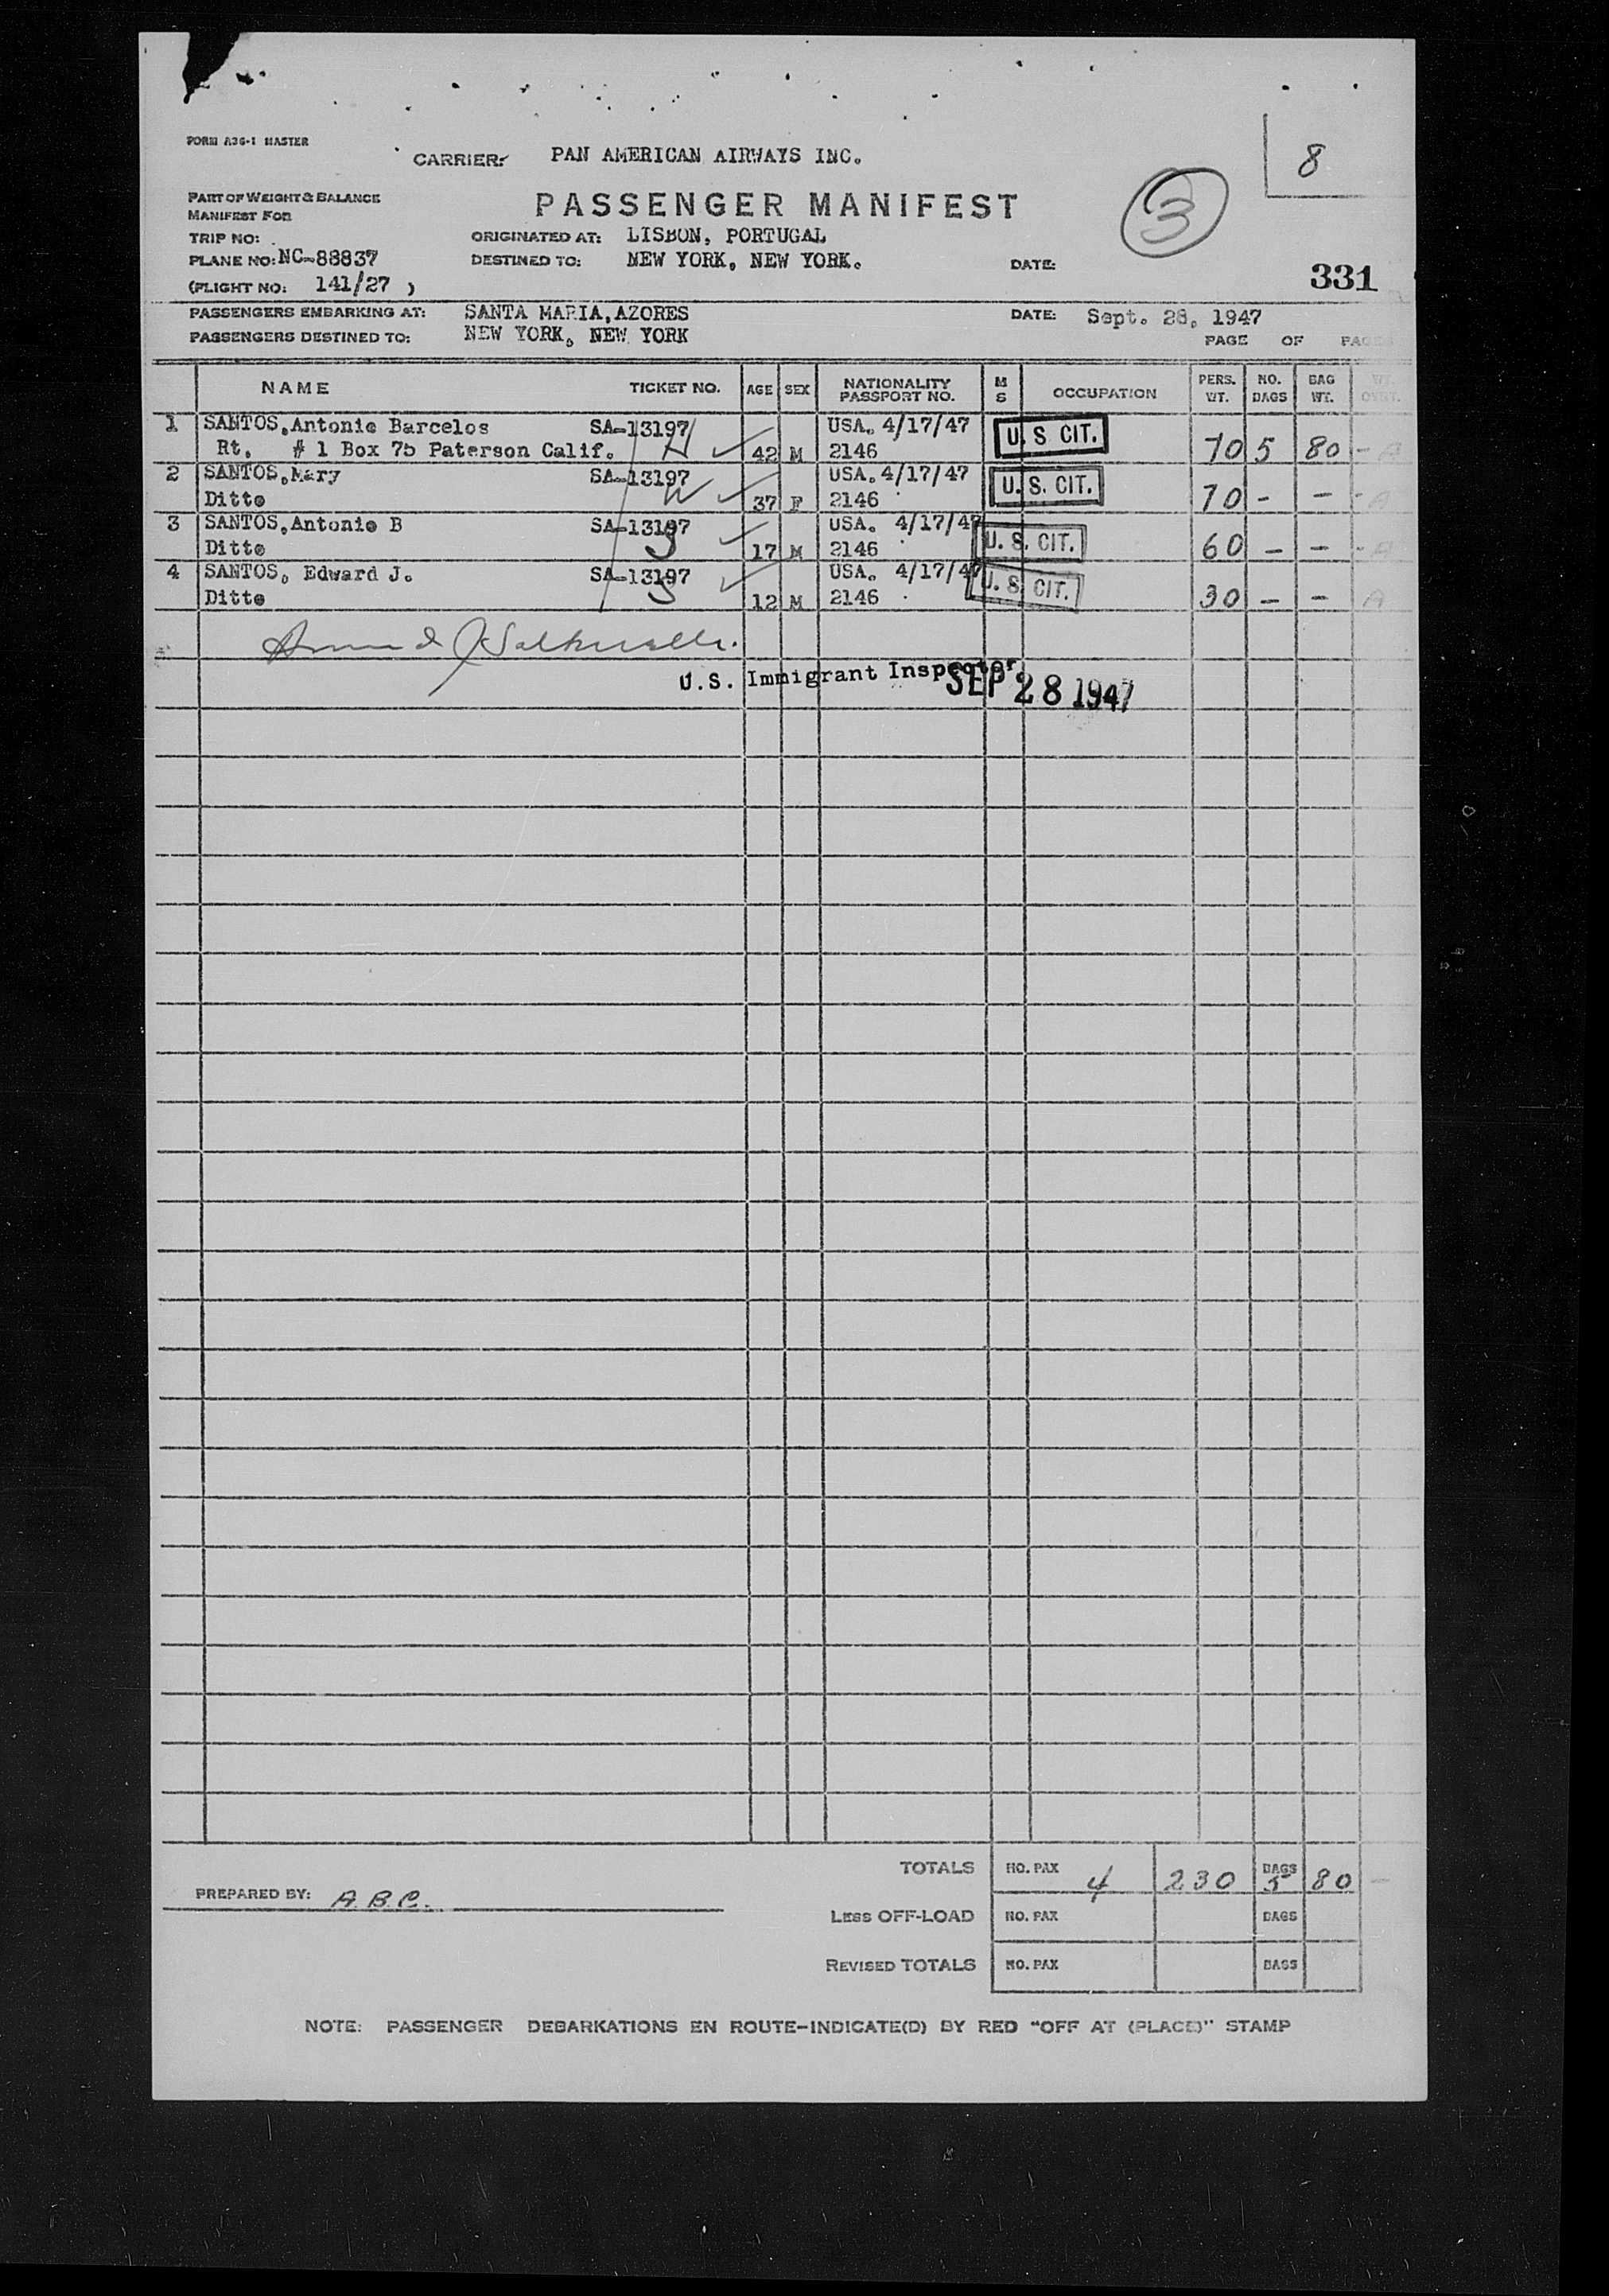 FORM A36-1 MASTER
CARRIER: PAN AMERICAN AIRWAYS INC.
8
PART OF WEIGHT & BALANCE
MANIFEST FOR
PASSENGER MANIFEST
3
TRIP NO:
ORIGINATED AT: LISBON, PORTUGAL
PLANE NO: NC-88837
DESTINED TO: NEW YORK, NEW YORK.
DATE:
331
(FLIGHT NO: 141/27 )
PASSENGERS EMBARKING AT: SANTA MARIA, AZORES
DATE: Sept. 28, 1947
PASSENGERS DESTINED TO: NEW YORK, NEW YORK
PAGE OF PAGES
NAME TICKET NO. AGE SEX NATIONALITY PASSPORT NO. M S OCCUPATION PERS. WT. NO. BAGS BAG WT.
1 SANTOS, Antonio Barcelos SA-13197 USA. 4/17/47 U.S. CIT.
Rt. # 1 Box 75 Paterson Calif. H 42 M 2146 70 5 80 -
2 SANTOS, Mary SA-13197 USA. 4/17/47 U.S. CIT.
Ditto W 37 F 2146 70 - - -
3 SANTOS, Antonio B SA-13197 USA. 4/17/47 U.S. CIT.
Ditto S 17 M 2146 60 - - -
4 SANTOS, Edward J. SA-13197 USA. 4/17/47 U.S. CIT.
Ditto S 12 M 2146 30 - -
U.S. Immigrant Inspector
SEP 28 1947
TOTALS NO. PAX 4 230 BAGS 5 80 -
PREPARED BY: A.B.C.
LESS OFF-LOAD NO. PAX BAGS
REVISED TOTALS NO. PAX BAGS
NOTE: PASSENGER DEBARKATIONS EN ROUTE-INDICATE(D) BY RED "OFF AT (PLACE)" STAMP